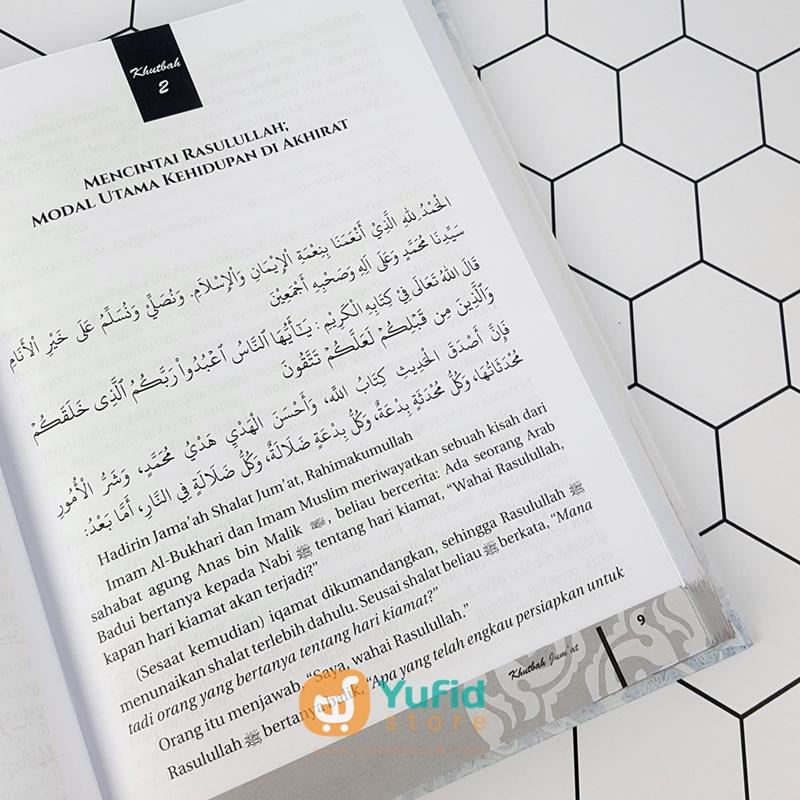 Khutbah
2
MENCINTAI RASULULLAH;
MODAL UTAMA KEHIDUPAN DI AKHIRAT
الْحَمْدُ للهِ الَّذِيْ أَنْعَمَنَا بِنِعْمَةِ الْإِيْمَانِ وَالْإِسْلَامِ. وَنُصَلِّيْ وَنُسَلِّمُ عَلَى خَيْرِ الْأَنَامِ
سَيِّدِنَا مُحَمَّدٍ وَعَلَى آلِهِ وَصَحْبِهِ أَجْمَعِيْنَ
قَالَ اللهُ تَعَالَى فِيْ كِتَابِهِ الْكَرِيْمِ : يَـٰٓأَيُّهَا ٱلنَّاسُ ٱعْبُدُوا۟ رَبَّكُمُ ٱلَّذِى خَلَقَكُمْ
وَٱلَّذِينَ مِن قَبْلِكُمْ لَعَلَّكُمْ تَتَّقُونَ
فَإِنَّ أَصْدَقَ الْحَدِيْثِ كِتَابُ اللهِ، وَأَحْسَنَ الْهَدْيِ هَدْيُ مُحَمَّدٍ، وَشَرُّ الْأُمُورِ
مُحْدَثَاتُهَا، وَكُلُّ مُحْدَثَةٍ بِدْعَةٌ، وَكُلُّ بِدْعَةٍ ضَلَالَةٌ، وَكُلُّ ضَلَالَةٍ فِي النَّارِ، أَمَّا بَعْدُ:
Hadirin Jama'ah Shalat Jum'at, Rahimakumullah
Imam Al-Bukhari dan Imam Muslim meriwayatkan sebuah kisah dari
sahabat agung Anas bin Malik , beliau bercerita: Ada seorang Arab
Badui bertanya kepada Nabi ﷺ tentang hari kiamat, "Wahai Rasulullah,
kapan hari kiamat akan terjadi?"
(Sesaat kemudian) iqamat dikumandangkan, sehingga Rasulullah ﷺ
menunaikan shalat terlebih dahulu. Seusai shalat beliau ﷺ berkata, "Mana
tadi orang yang bertanya tentang hari kiamat?"
Orang itu menjawab, "Saya, wahai Rasulullah."
Rasulullah ﷺ bertanya balik, "Apa yang telah engkau persiapkan untuk
Khutbah Jum'at
9
Yufid
store